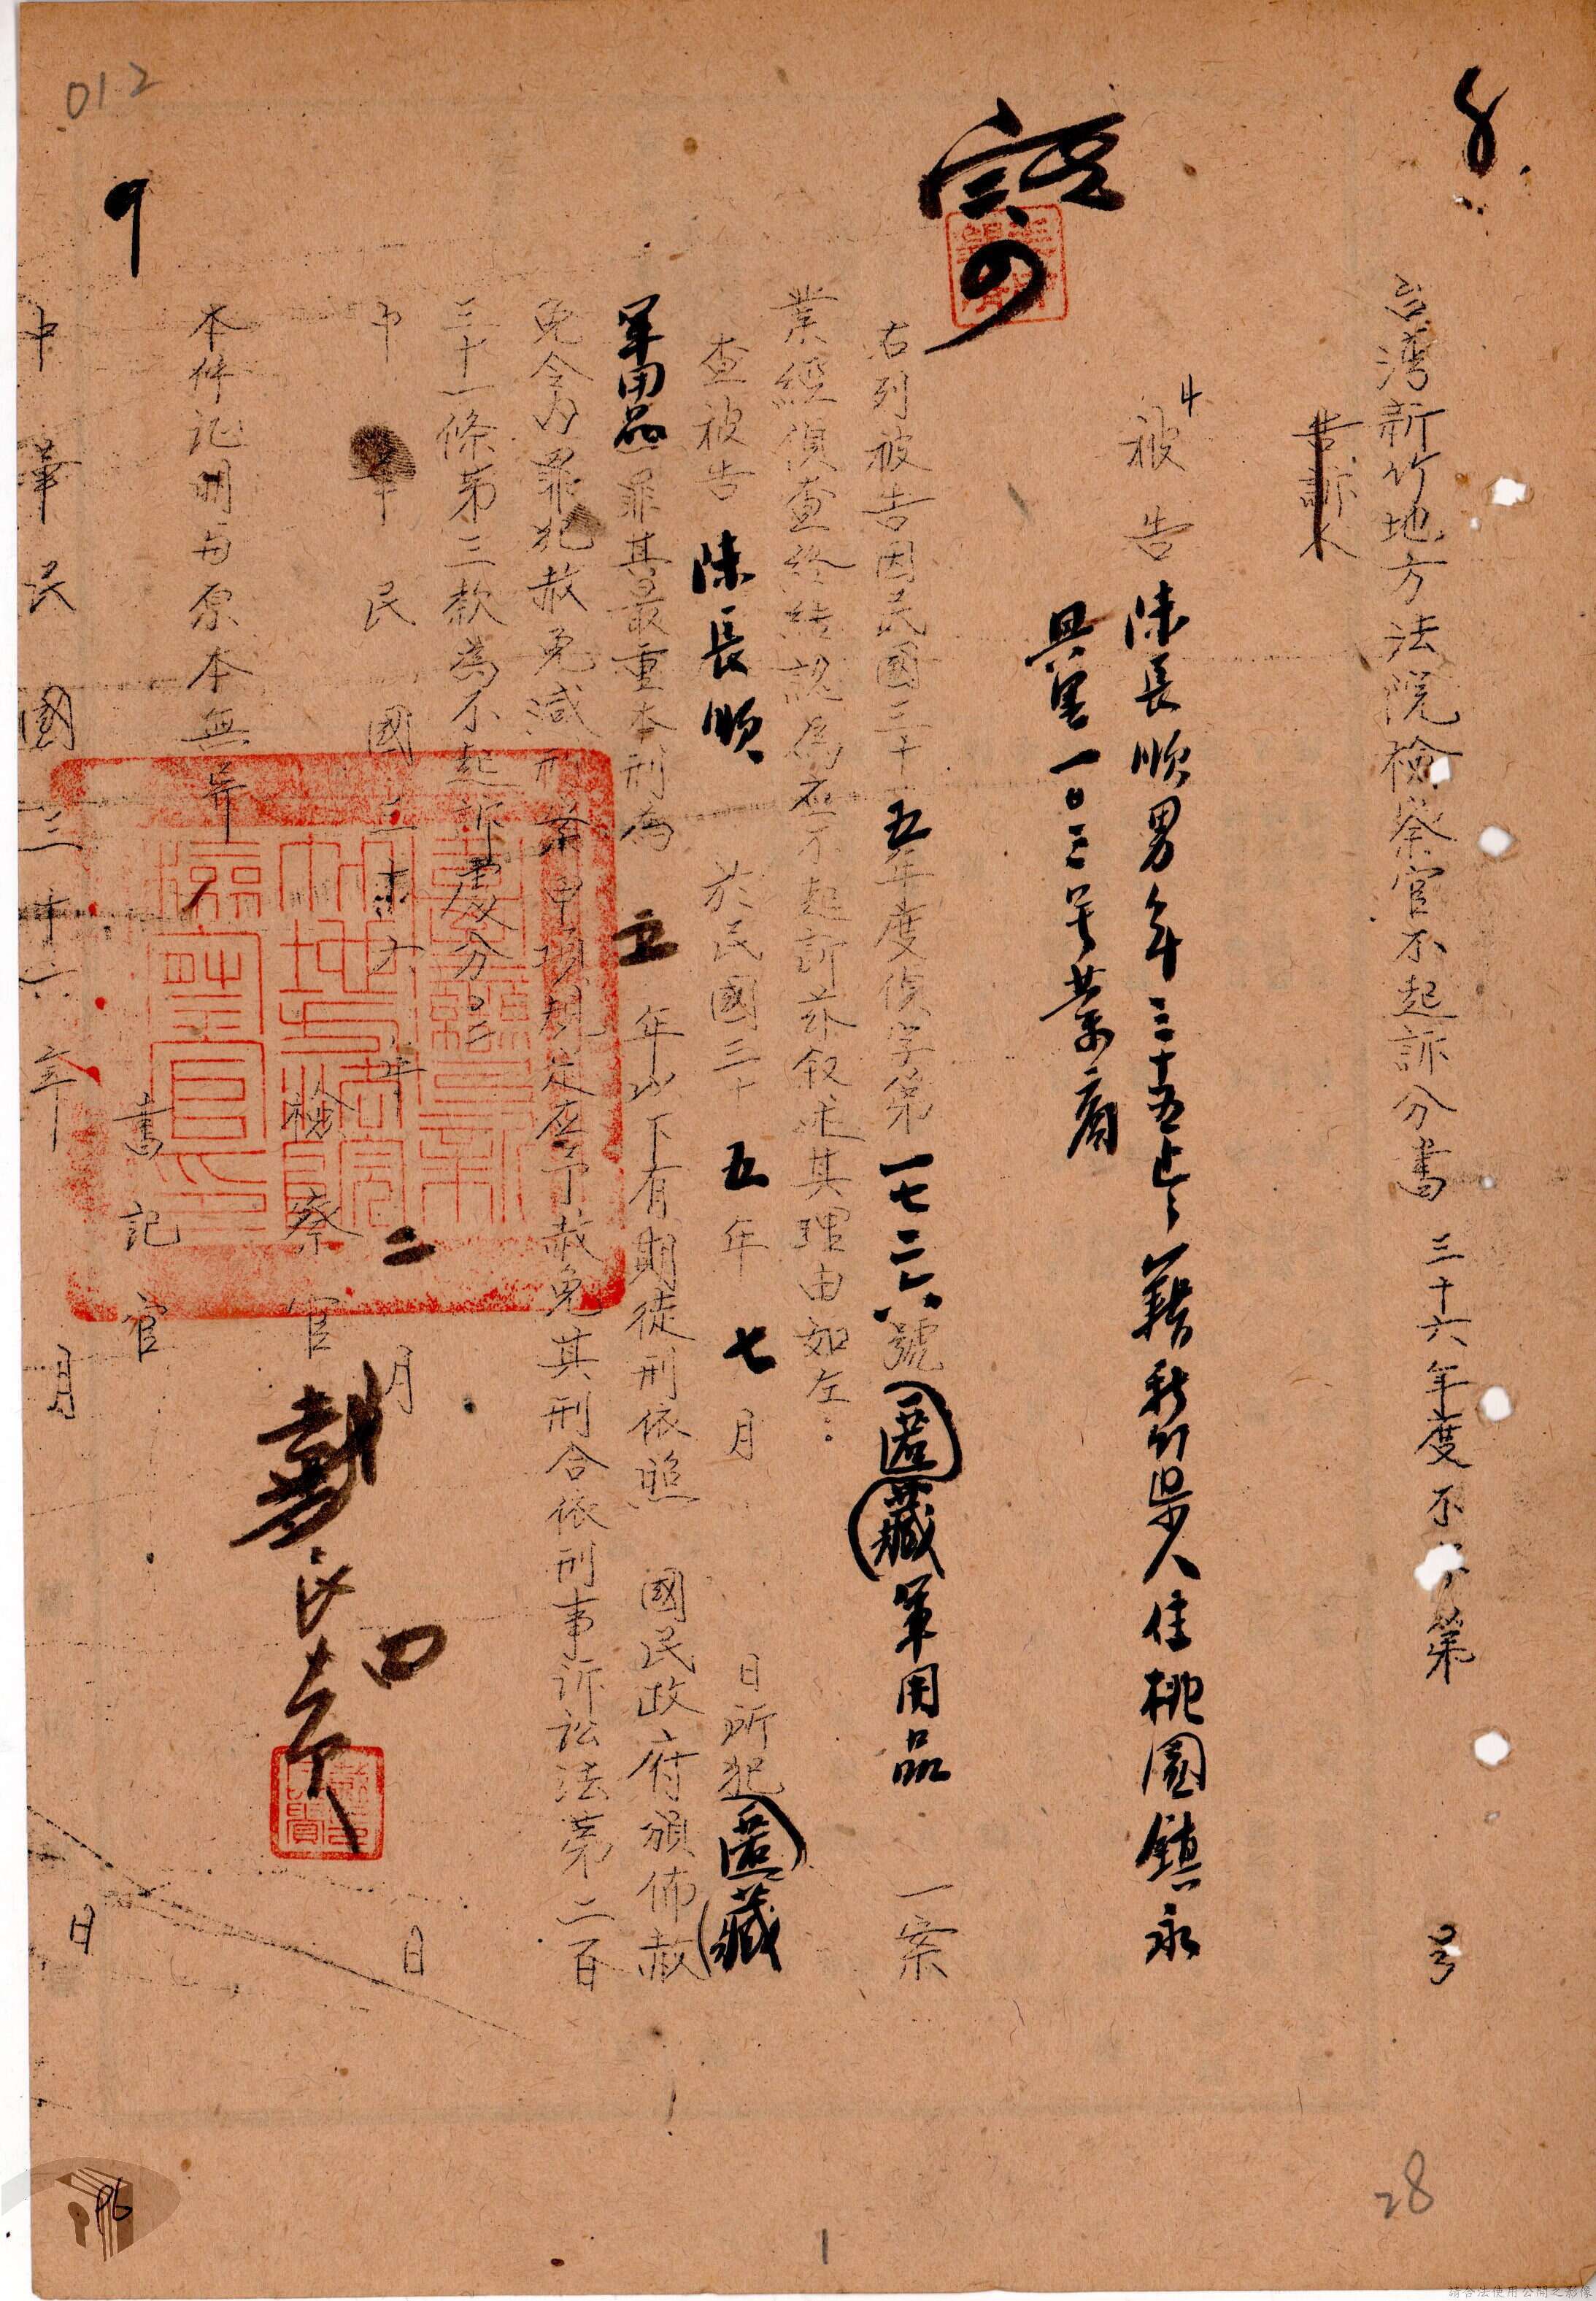 台灣新竹地方法院檢察官不起訴分書 三十六年度不字第 号
告訴人
被告 陳長順男年三十五歲籍新竹県人住桃園鎮永
興里一〇三号業商
右列被告因民國三十五年度偵字第一七二六號匿藏軍用品 一案
業經偵查終結認為應不起訴茲叙述其理由如左:
查被告 陳長順 於民國三十五年七月 日所犯匿藏
軍用品罪其最重本刑為五年以下有期徒刑依照 國民政府頒佈赦
免令內罪犯赦免減刑案甲項規定應予赦免其刑合依刑事訴訟法第二百
三十一條第三款為不起訴處分
中華民國三十六年二月 日
檢察官
本件証明與原本無異
書記官
中華民國三十六年 月 日
可
012
9
8
28
1
96
請合法使用公開之影像